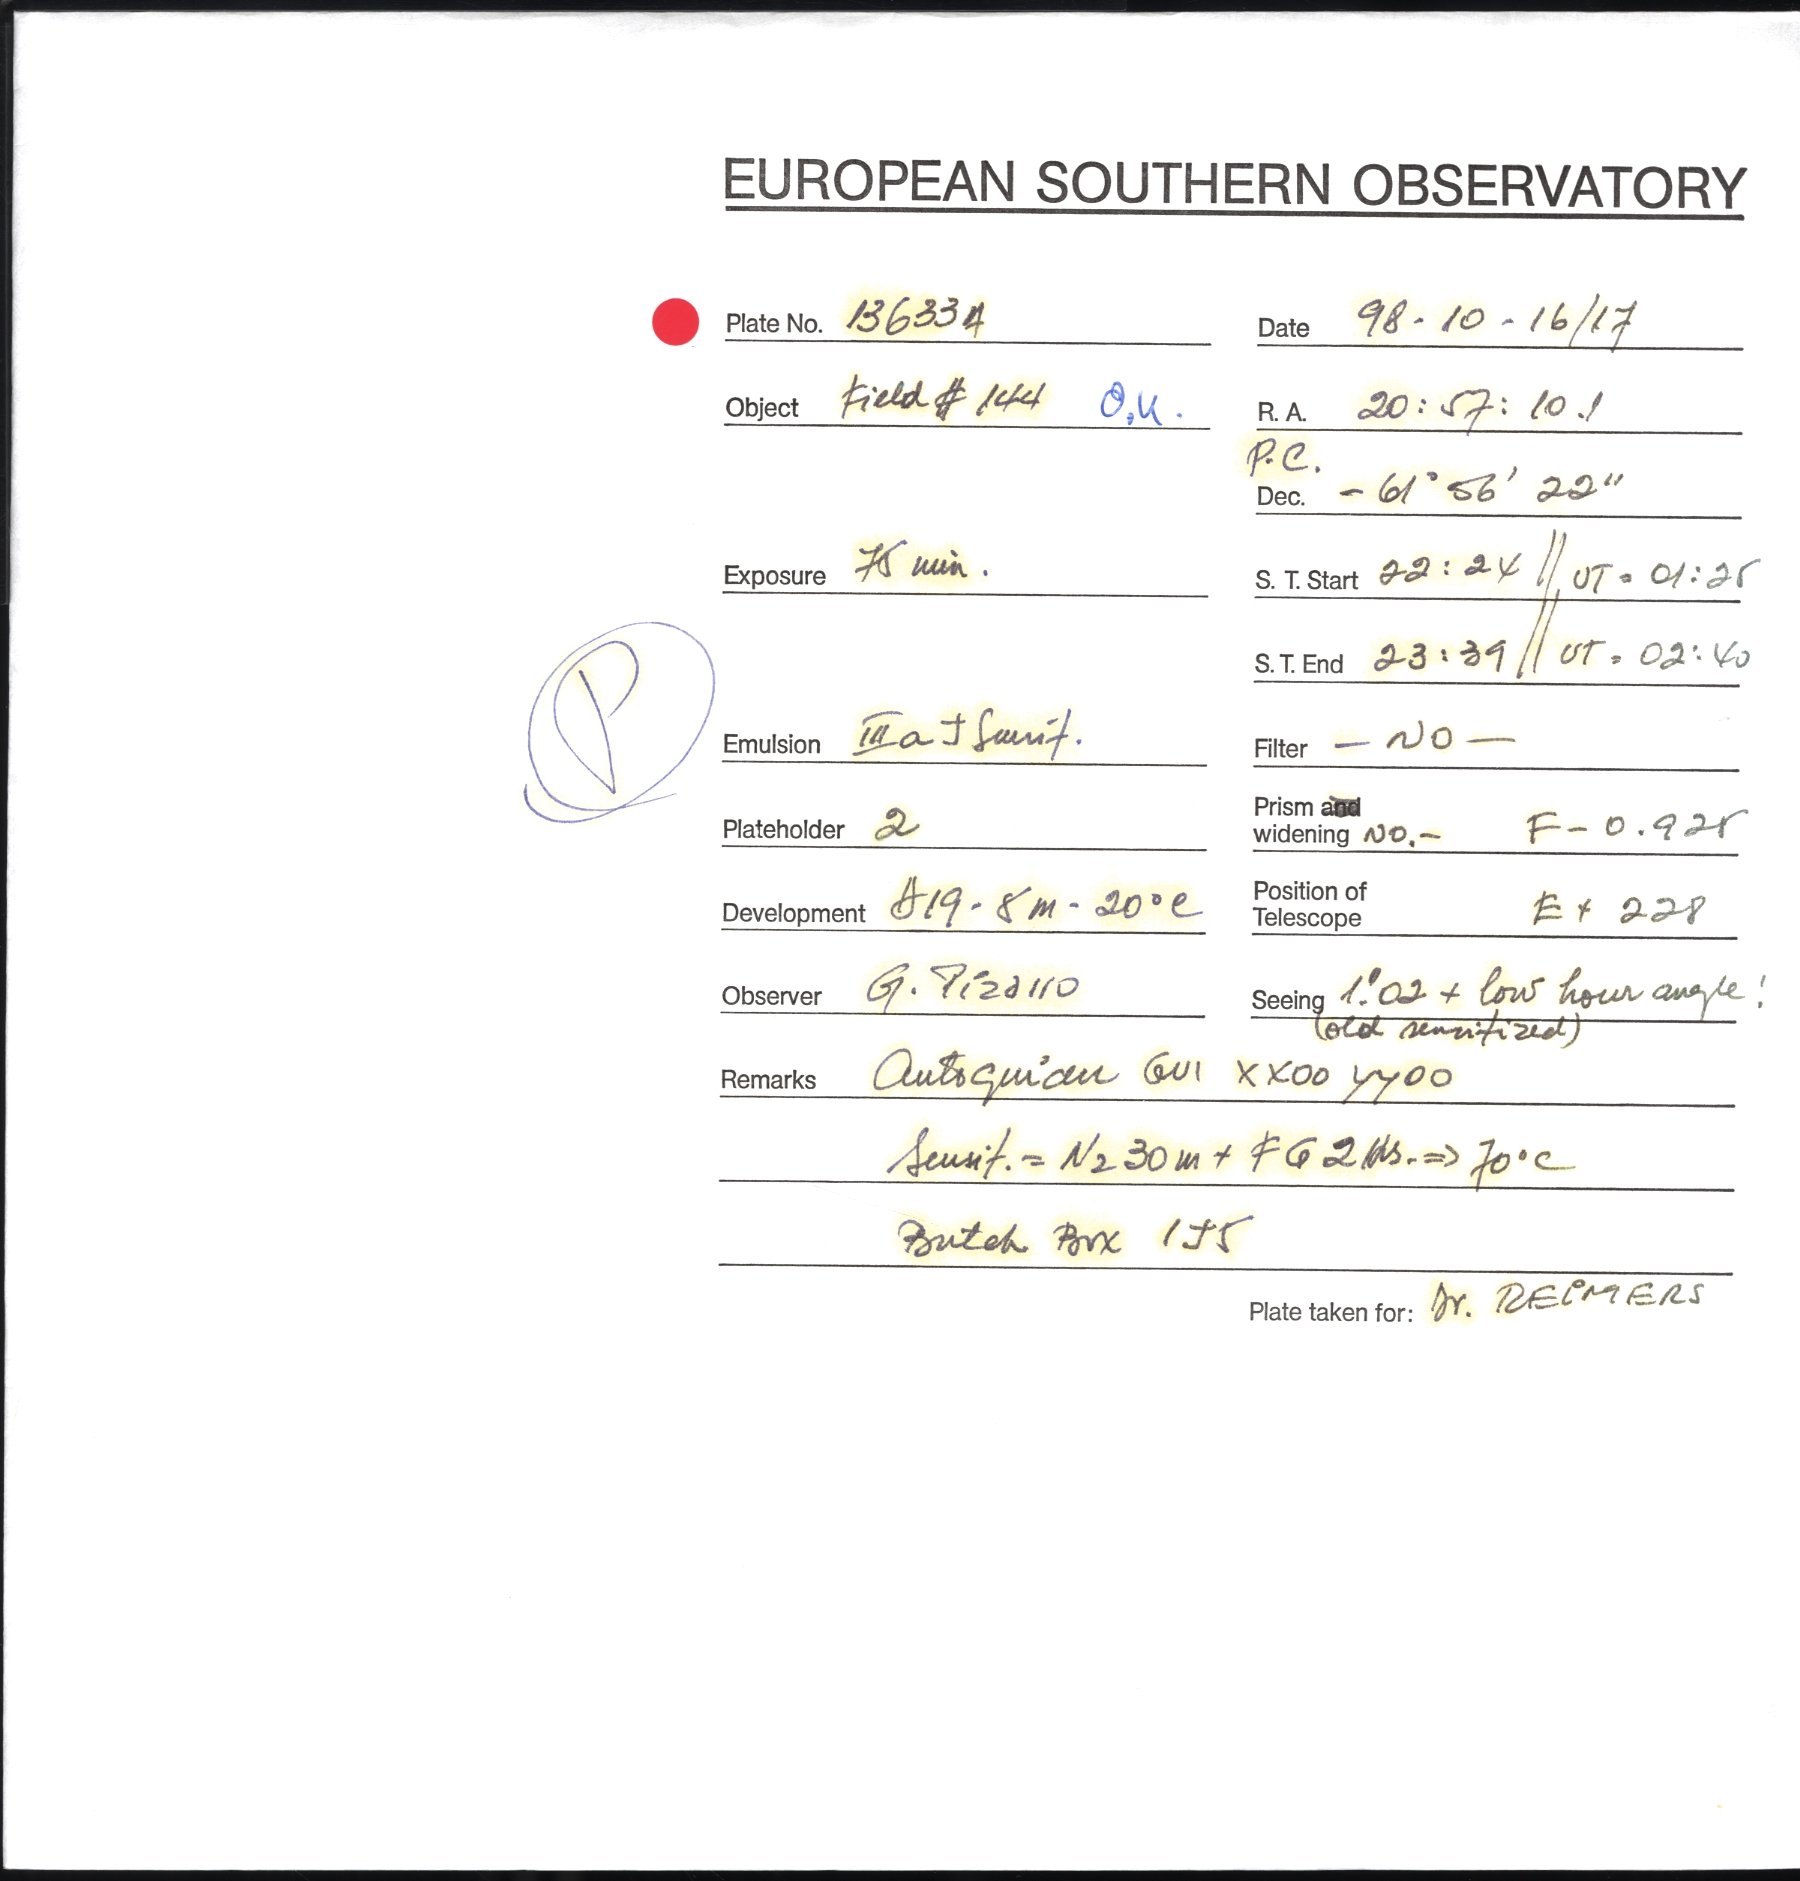 EUROPEAN SOUTHERN OBSERVATORY
Plate No. 13633A Date 98-10-16/17
Object Field # 144 O.K. R. A. 20:57:10.1
P.C.
Dec. - 61° 56' 22"
Exposure 75 min. S. T. Start 22:24 // UT = 01:25
S. T. End 23:39 // UT = 02:40
P
Emulsion IIIa J Sensit. Filter — NO —
Plateholder 2 Prism and widening NO.- F - 0.925
Development D19 - 8m - 20°C Position of Telescope E + 228
Observer G. Pizarro Seeing 1".02 + low hour angle!
(old sensitized)
Remarks GUI XX00 YY00
Sensit. = N2 30m + FG 2 Hrs. => 70°C
Batch Box 1J5
Plate taken for: Dr. REIMERS